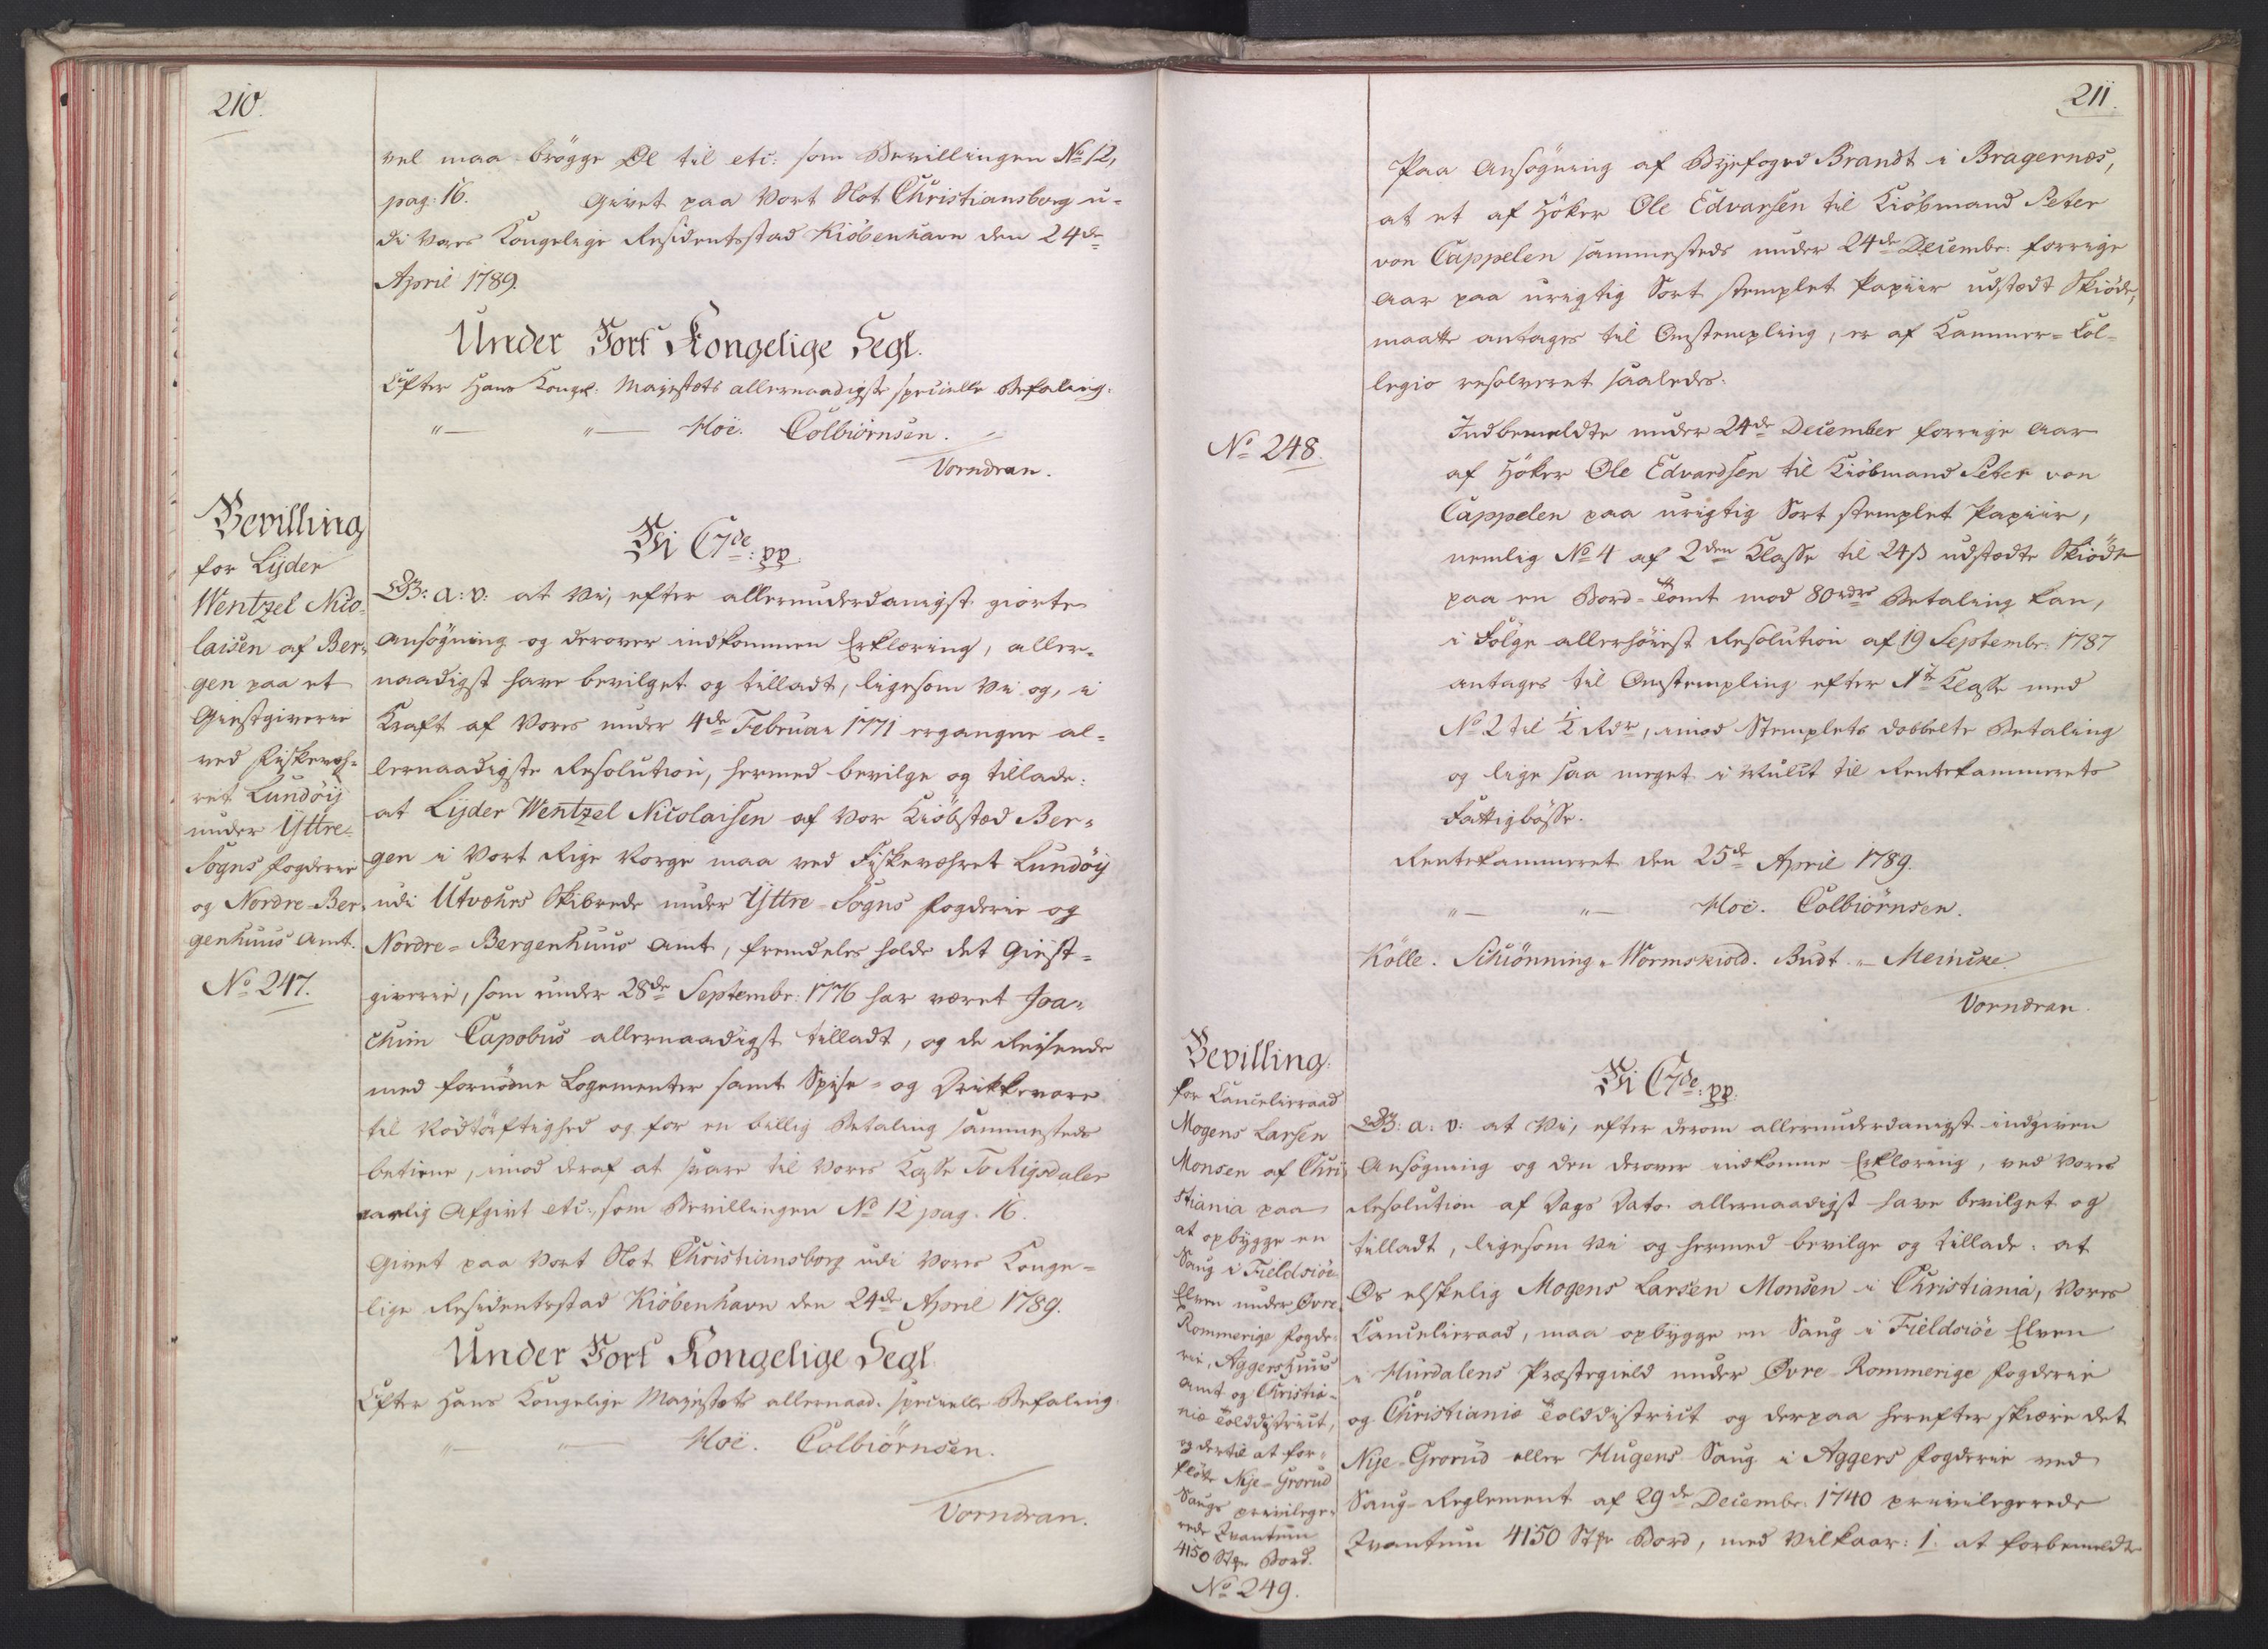 210.
vel maa brygge Øl til etc: som Bevillingen No 12,
pag: 16. Givet paa Vort Slot Christiansborg u-
di Vores Kongelige Residentsstad Kiöbenhavn den 24de
April 1789.
Under Vort Kongelige Segl.
Efter Hans Kongel: Mayestæts allernaadigste specielle Befaling.
"— "— Moe. Colbiörnsen.
Vorndran.
Bevilling
for Lyder
Wentzel Nico-
laisen af Ber-
gen paa et
Giestgiverie
ved Fiskeveh-
ret Lundöy
under Yttre-
Sogns Fogderie
og Nordre-Ber-
genhuus Amt.
No 247.
Vi C7de: pp:
G: a: v: at Vi, efter allerunderdanigst giorte
Ansögning og derover indkommen Erklæring, aller-
naadigst have bevilget og tilladt, ligesom Vi og, i
Kraft af Vores under 4de Februar 1771 ergangne al-
lernaadigste Resolution, hermed bevilge og tillade:
at Lyder Wentzel Nicolaisen af Vor Kiöbstæd Ber-
gen i Vort Rige Norge maa ved Fiskevæhret Lundöy
udi Utvæhrs Skibrede under Yttre-Sogns Fogderie og
Nordre-Bergenhuus Amt, fremdeles holde det Giest-
giverie, som under 28de Septembr: 1776 har været Joa-
chim Capobus allernaadigst tilladt, og de Reisende
med fornödne Logementer samt Spise- og Drikkevare
til Nödtörftighed og for en billig Betaling sammesteds
betiene, imod deraf at svare til Vores Casse To Rigsdaler
aarlig Afgivt etc., som Bevillingen No 12 pag. 16.
Givet paa Vort Slot Christiansborg udi Vores Konge-
lige Residentsstad Kiöbenhavn den 24de April 1789.
Under Vort Kongelige Segl.
Efter Hans Kongelige Mayestæts allernaad. specielle Befaling
"— "— Moe. Colbiörnsen.
Vorndran.
211.
Paa Ansögning af Byefoged Brandt i Bragernæs,
at et af Höker Ole Edvarsen til Kiöbmand Peter
von Cappelen sammesteds under 24de Decembr: forrige
Aar paa urigtig Sort stemplet Papiir udstædt Skiöde,
maatte antages til Omstempling, er af Kammer-Col-
legio resolveret saaledes:
No 248.
Indbemeldte under 24de December forrige Aar
af Höker Ole Edvardsen til Kiöbmand Peter von
Cappelen paa urigtig Sort stemplet Papiir,
nemlig No 4 af 2den Classe til 24 ß udstædte Skiöde
paa en Bord-Tomt mod 80 rdrs Betaling kan,
i Fölge allerhöiest Resolution af 19 Septembr: 1787
antages til Omstempling efter 1te Classe med
No 2 til ½ Rdr, imod Stemplets dobbelte Betaling
og lige saa meget i Mulct til Rentekammerets
Fattigbösse.
Rentekammeret den 25de April 1789.
"— "— Moe. Colbiörnsen.
Kölle. Schiönning. Wormskiold. Budt. Meincke.
Vorndran.
Bevilling
for Cancelieraad
Mogens Larsen
Monsen af Chri-
stiania paa
at opbygge en
Saug i Fieldsiöe
Elven under Övre
Rommerige Fogde-
rie, Aggershuus
Amt og Christia-
niæ Tolddistrict,
og dertil at for-
flöte Nye-Grorud
Saugs privilege-
rede Qvantum
4150 Stkr Bord.
No 249.
Vi C7de: pp:
G: a: v: at Vi, efter derom allerunderdanigst indgiven
Ansögning og den derover indkomne Erklæring, ved Vores
Resolution af Dags Dato allernaadigst have bevilget og
tilladt, ligesom Vi og hermed bevilge og tillade: at
Os elskelig Mogens Larsen Monsen i Christiania, Vores
Cancelieraad, maa opbygge en Saug i Fieldsiöe Elven
i Hurdalens Præstegield under Övre-Rommerige Fogderie
og Christianiæ Tolddistrict og derpaa herefter skiære det
Nye-Grorud eller Hugens Saug i Aggers Fogderie ved
Saug-Reglement af 29de Decembr: 1740 privilegerede
Qvantum 4150 Stkr Bord, med Vilkaar: 1. at forbemeldte